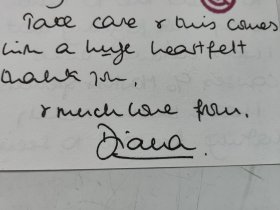 Take care & this comes
with a huge heartfelt
thank you,
& much love from,
Diana.